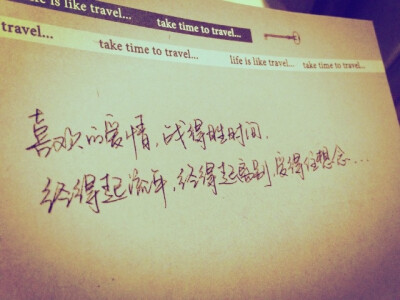 life is like travel...
take time to travel...
travel...
take time to travel...
life is like travel...
take time to travel...
喜欢的爱情,战得胜时间,
经得起流年,经得起离别,受得住想念...